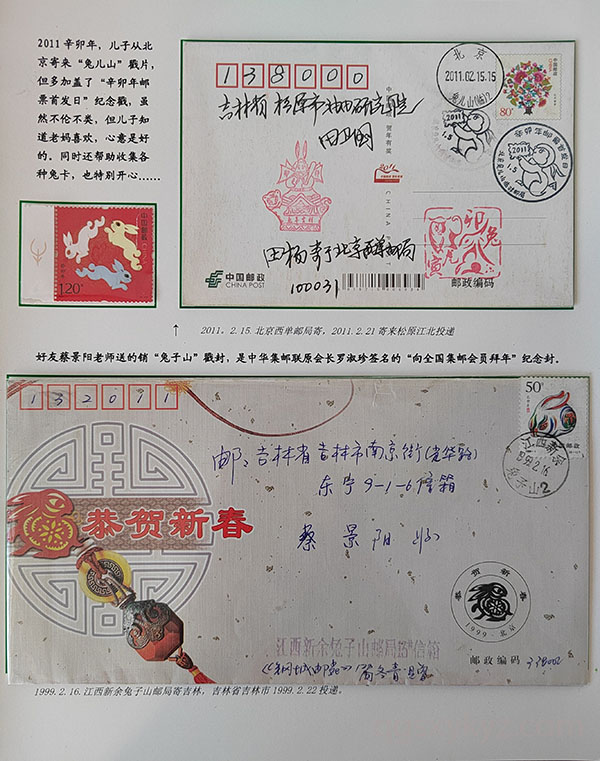 2011 辛卯年，儿子从北
京寄来“兔儿山”戳片，
但多加盖了“辛卯年邮
票首发日”纪念戳，虽
然不伦不类，但儿子知
道老妈喜欢，心意是好
的。同时还帮助收集各
种兔卡，也特别开心……
中国邮政
1.20元
138000
吉林省 松原市
北京
2011.02.15.15
兔儿山(临)2
中国邮政
CHINA
80分
2011
1.5
辛卯年邮票首发日
2011
1.5
中国
贺年有奖
CHINA P
田杨寄于北京西单邮局
100031
中国邮政
CHINA POST
卯兔
寅虎
邮政编码
2011。2.15.北京西单邮局寄，2011.2.21 寄来松原江北投递
好友蔡景阳老师送的销“兔子山”戳封，是中华集邮联原会长罗淑珍签名的“向全国集邮会员拜年”纪念封。
132011
50分
中国邮政
江西新余
1999.2.16
兔子山2
邮：吉林省吉林市南京街
东宁9-1-6信箱
蔡景阳 收
恭贺新春
恭贺新春
1999·北京
江西新余兔子山邮局 信箱
邮政编码 338002
《钢城邮苑》
1999.2.16.江西新余兔子山邮局寄吉林，吉林省吉林市 1999.2.22 投递。